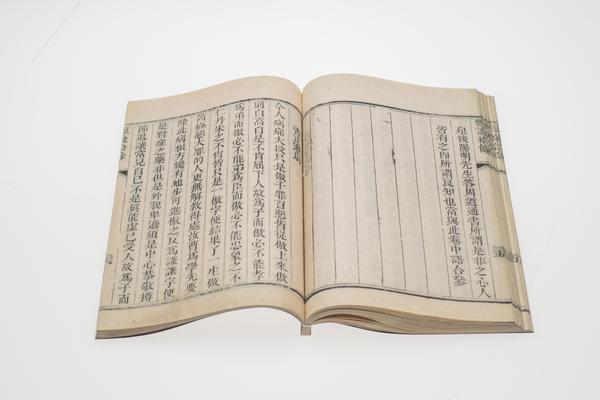 泉按陽明先生答周道通書所謂是非之心人
皆有之卽所謂良知也當與此卷中語合參
書正憲扇
今人病痛大段只是傲千罪百惡皆從傲上來傲
則自高自是不肯屈下人故爲子而傲必不能孝
爲弟而傲必不能弟爲臣而傲必不能忠象之不
仁丹朱之不肖皆只是一傲字便結果了一生做
箇極惡大罪的人更無解救得處汝曹爲學先要
除此病根方纔有地步可進傲之反爲謙謙字便
是對症之藥非但是外貌卑遜須是中心恭敬撙
節退讓常見自己不是眞能虛己受人故爲子而